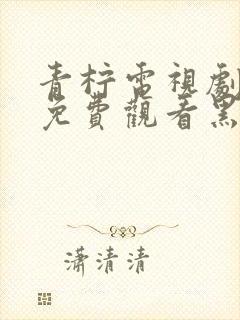 青柠電視劇
免費觀看黑
瀟清清